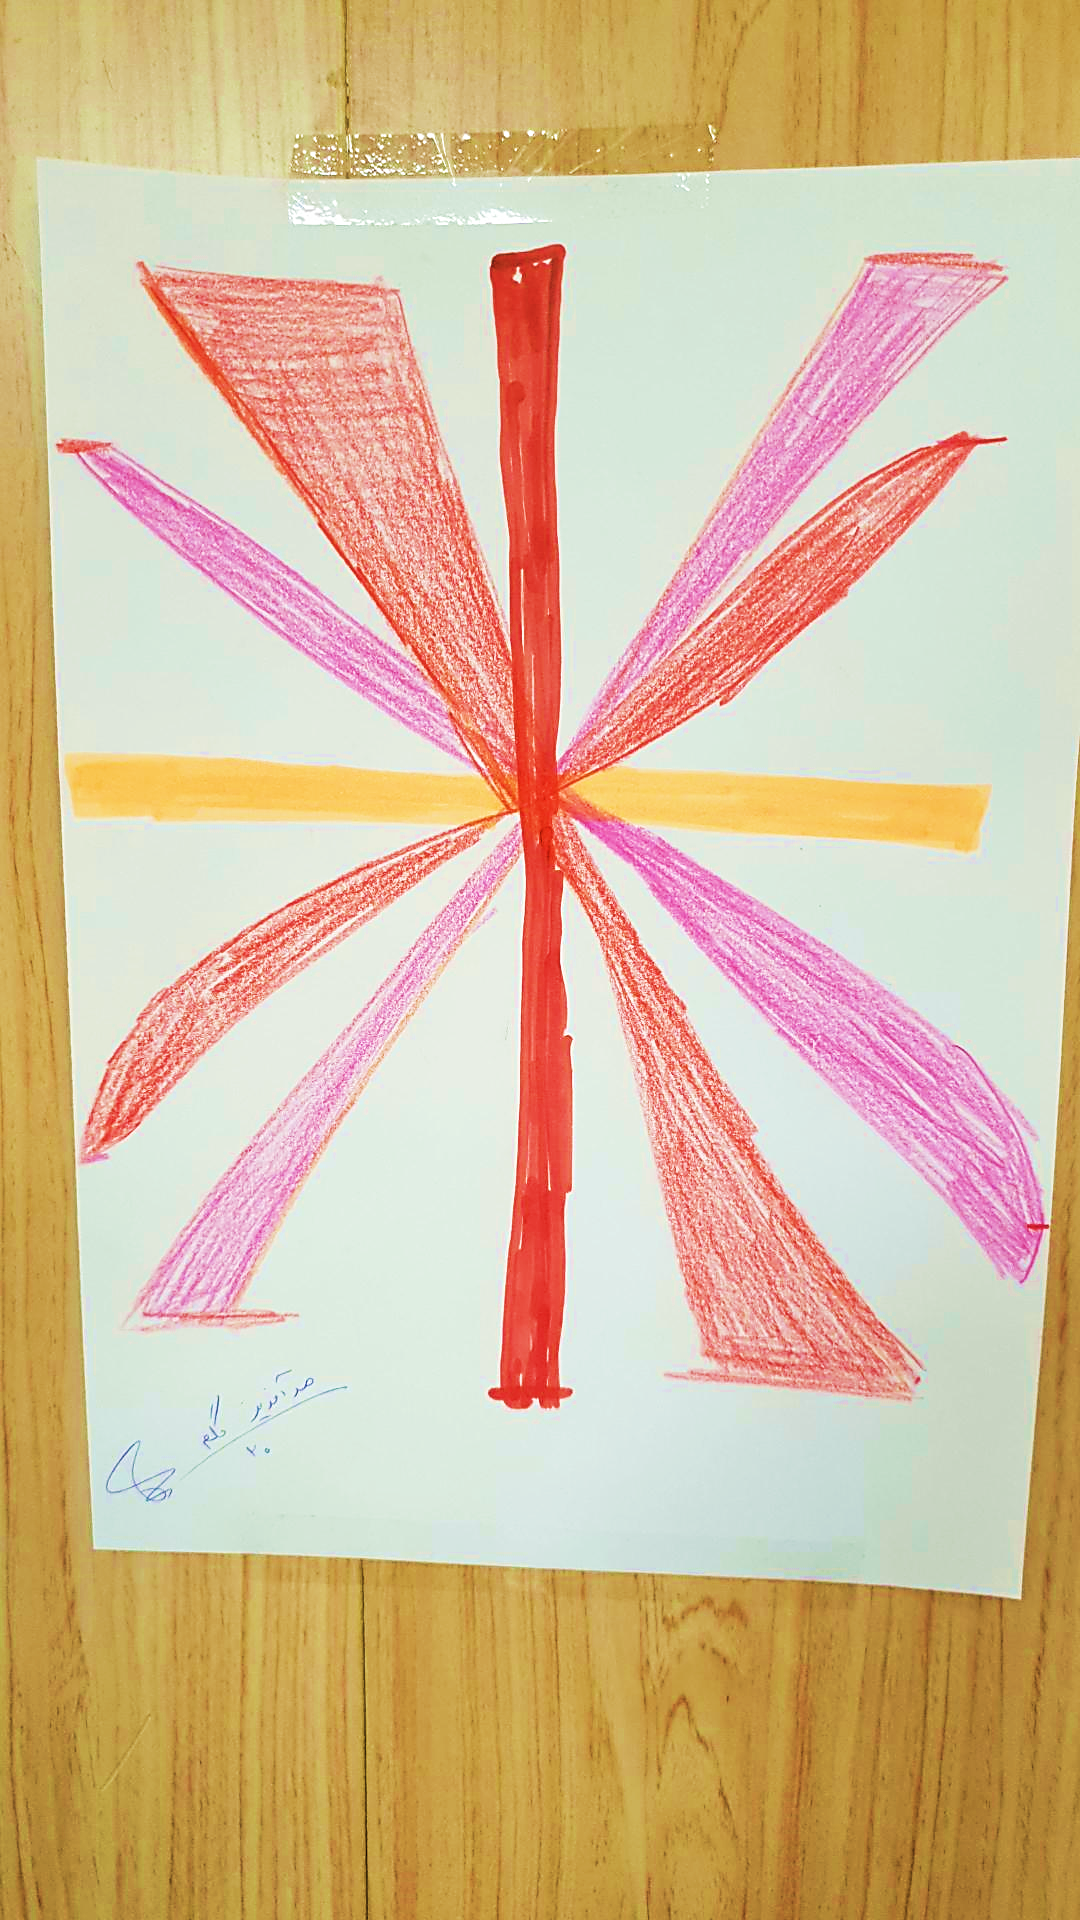 صد آفرین گلم
۲۰